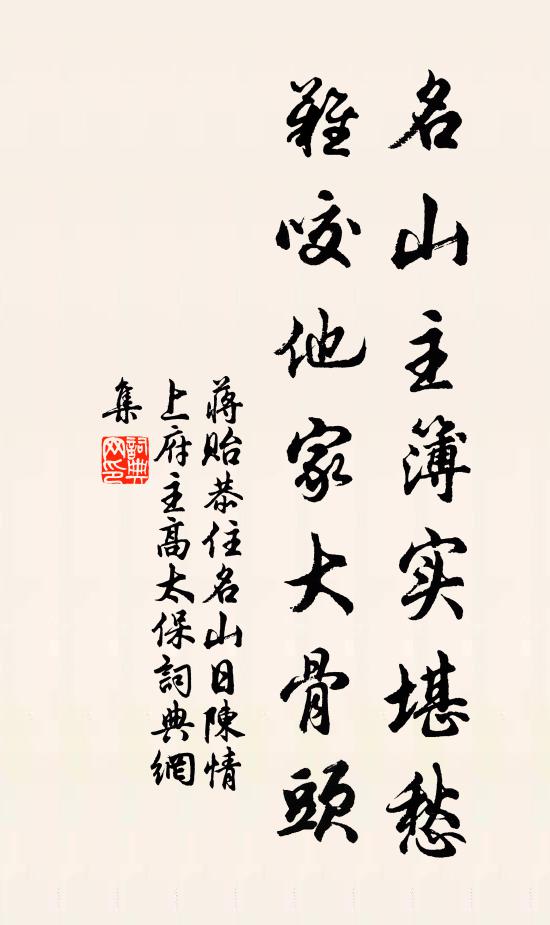 名山主簿实堪愁
難咬他家大骨頭
蔣貽恭住名山日陳情
上府主高太保詞典網
集
詞典
网印